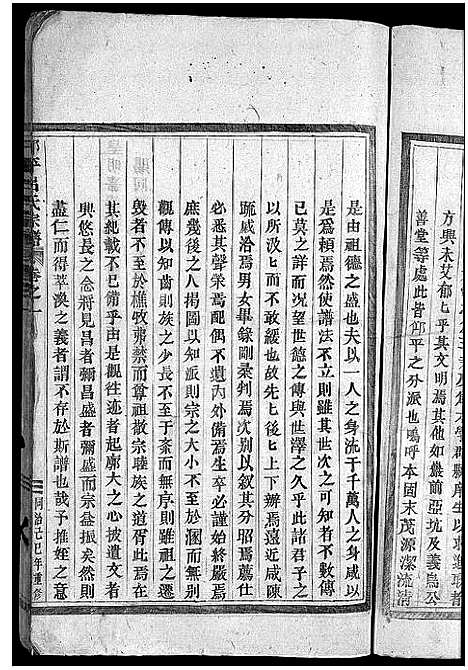 方興未艾郁匕乎其文明焉其他如鹽前亞坑及義烏公
善堂等處此皆鄮平之分派也嗚呼本固末茂源潔流清
是由祖德之盛也夫以一人之身流于千萬人之身咸以
是為賴焉然使譜法不立則雖其世次之可知者不數傳
已莫之詳而況望世德之傳與世澤之久乎此諸君子之
以所汲匕而不敢緩也故先匕後匕上下辨焉遠近咸陳
疏戚洽焉男女畢錄剛柔判焉沈別以敘其分昭焉薦仕
必悉其聲榮焉配偶不遺內外備焉生卒必謹始終嚴焉
庶幾後之人揭圖以知派則宗之大小不至於溷而無別
觀傳以知齒則族之少長不至于紊而無序則雖祖之遷
毀者不至於樵牧弗禁而尊祖敬宗睦族之道胥此焉在
其紀載不已備乎由是觀徃迹者起廓大之心披遺文者
興悠長之念將見昌者彌昌盛者彌盛而宗益振矣然則
盡仁而得萃渙之義者謂不存於斯譜也哉予推姪之意
呂氏宗譜 卷之一
同治己巳年重修